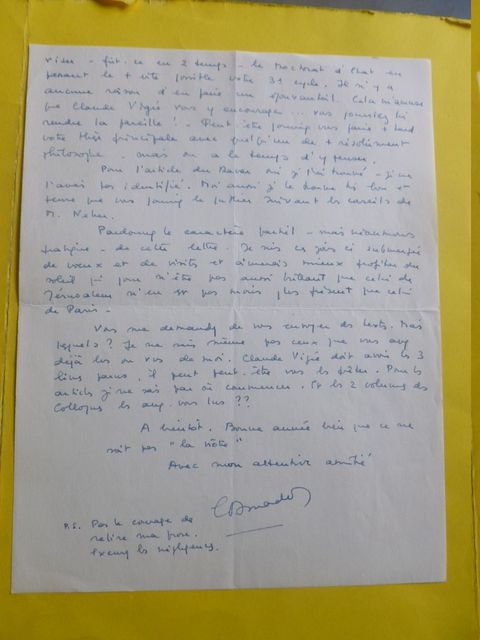 viser - fût-ce en 2 temps - le Doctorat d'Etat en
passant le + vite possible votre 3e cycle. Il n'y a
aucune raison d'en faire un épouvantail. Cela m'amuse
que Claude Vigée vous y encourage... vous pourriez lui
rendre la pareille ! - Peut-être pourrez vous faire + tard
votre thèse principale avec quelqu'un de + résolument
philosophe, mais on a le temps d'y penser.
Pour l'article du Davar oui je l'ai trouvé - je ne
l'avais pas identifié. Moi aussi je le trouve très bon et
pense que vous pourrez le publier suivant les conseils de
M. Neher.
Pardonnez le caractère partiel - mais néanmoins
- de cette lettre. Je suis ces jours ci submergée
de voeux et de visites et aimerais mieux profiter du
soleil qui pour n'être pas aussi brûlant que celui de
Jérusalem n'en est pas moins plus présent que celui
de Paris.
Vous me demandez de vous envoyer des textes. Mais
lesquels ? Je ne sais même pas ceux que vous avez
déjà lus ou vus de moi. Claude Vigée doit avoir les 3
livres parus, il peut peut-être vous les prêter. Pour les
articles je ne sais par où commencer. Et les 2 volumes des
Colloques les avez-vous lus ??
A bientôt. Bonne année bien que ce ne
soit pas "la nôtre"
Avec mon attentive amitié
P.S. Pas le courage de
relire ma prose.
Excusez les négligences.